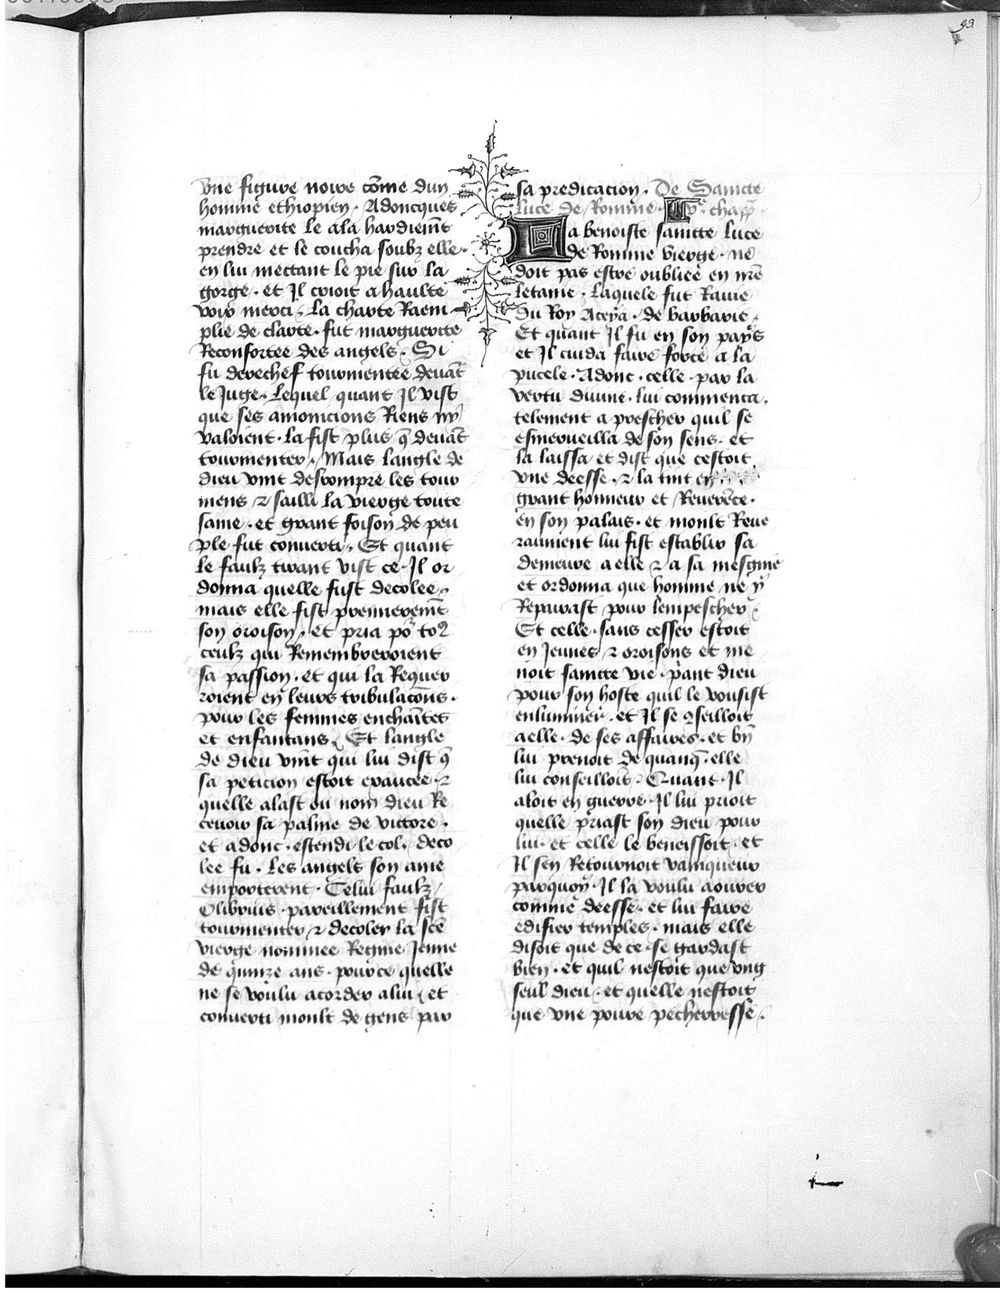 93
vne figure noire cōme dun
homme ethiopien · Adoncques
marguerite le ala hardiemt̄
prendre et le coucha soubz elle ·
en lui mectant le pie sur la
gorge · et Il crioit a haulte
voix merci · La chartre Raem
plie de clarte · fut marguerite
Reconfortee des angels · Si
fu derechef tourmentee deuāt
le Juge · Lequel quant Il vist
que ses amonicions Riens ny
valoient · la fist plus q̄ deuāt
tourmenter · Mais langle de
dieu vint desrompre les tour
mens ⁊ sailli la vierge toute
saine · et grant foison de peu
ple fut conuerti · Et quant
le faulz tirant vist ce · Il or
donna quelle fust decolee ·
mais elle fist premieremt̄
son oroison · et pria po² to⁹
ceulz qui Remembreroient
sa passion · et qui la Requer
roient en leurs tribulacōns ·
pour les femmes enchaītes
et enfantans · Et langle
de dieu vīnt qui lui dist q̄
sa peticion estoit exaucee · ⁊
quelle alast ou nom dieu Re
ceuoir sa palme de victore ·
et adonc · estendi le col · deco
lee fu · Les angels son ame
emporterent · Celui faulz
Olibrius · pareillement fist
tourmenter ⁊ decoler la sc̄e
vierge nommee Regine Jenne
de quinze ans · pource quelle
ne se voulu acorder alui · et
conuerti moult de gens par
sa predicacion · De Saincte
luce de Romme · chap̄
La benoiste saincte luce
de Romme vierge · ne
doit pas estre oubliee en nr̄e
letanie · Laquele fut Rauie
du Roy Aceya · de barbarie ·
Et quant Il fu en son pays
et Il cuida faire force a la
pucele · Adonc · celle par la
vertu diuine · lui commenca ·
telement a prescher quil se
esmerueilla de son sens · et
la laissa et dist que cestoit
vne deesse · ⁊ la tint en
grant honneur et Reuerēce ·
en son palais · et moult Reue
raument lui fist establir sa
demeure a elle ⁊ a sa mesgnie
et ordonna que homme ne y
Repairast pour lempescher ·
Et celle · sans cesser estoit
en Jeunes ⁊ oroisons et me
noit saincte vie · p̄ant dieu
pour son hoste quil le vousist
enluminer · et Il se ꝯseilloit
aelle · de ses affaires · et bn̄
lui prenoit de quanq̄ · elle
lui conseilloit · Quant · Il
aloit en guerre · Il lui prioit
quelle priast son dieu pour
lui · et celle le beneissoit · et
Il sen Retournoit vainqueur
parquoy · Il la voulu aourer
comme deesse · et lui faire
edifier temples · mais elle
disoit que de ce · se gardast
bien · et quil nestoit que vng
seul dieu · et quelle nestoit
que vne poure pecherresse ·